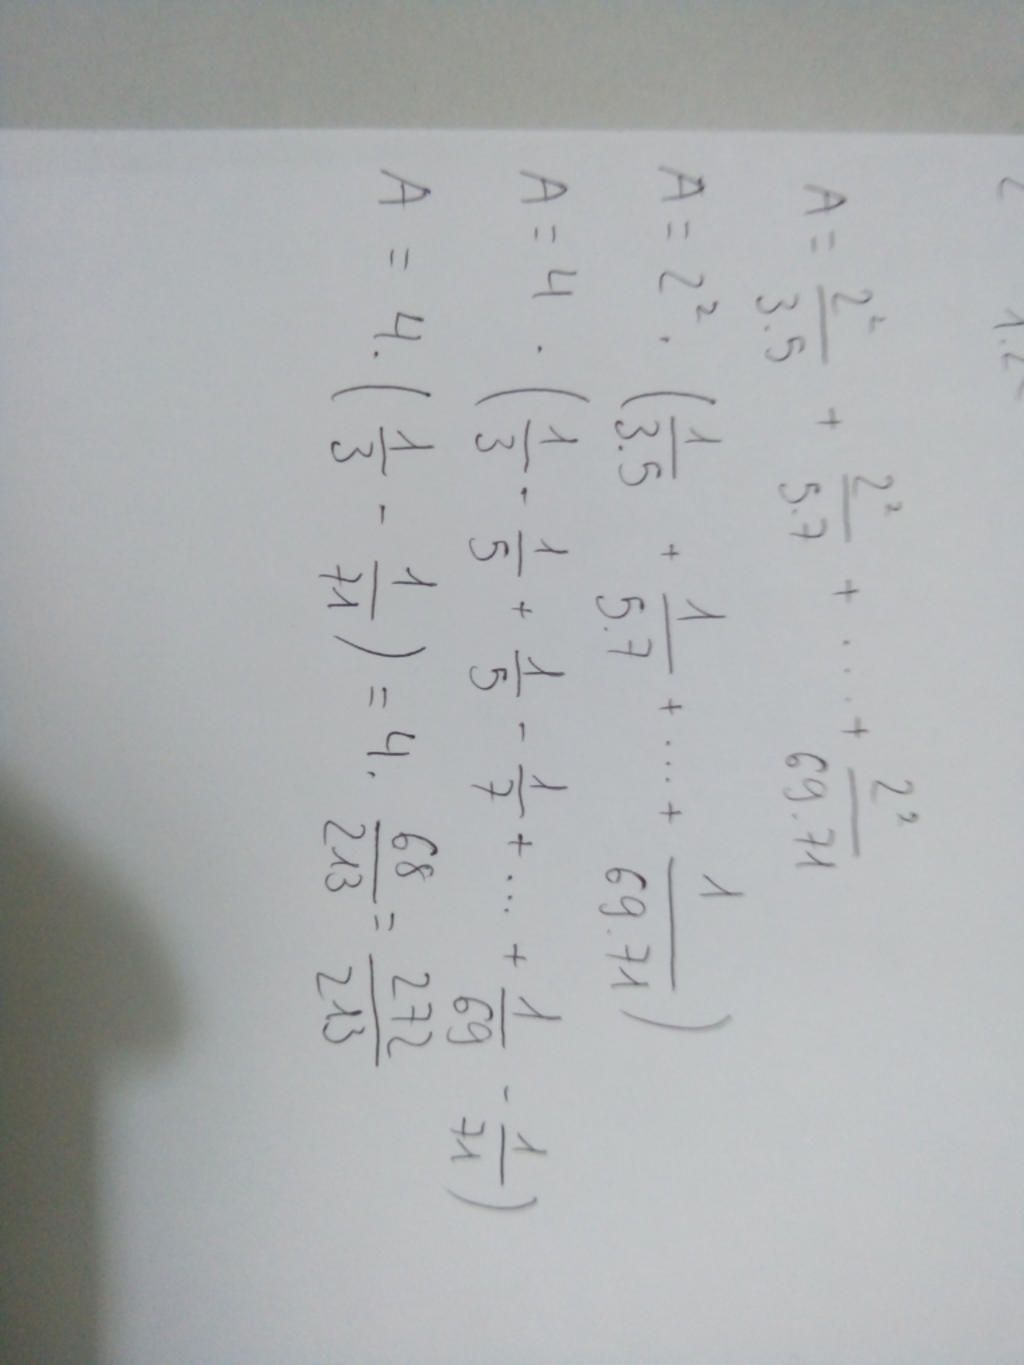 A = 2²/3.5 + 2²/5.7 + ... + 2²/69.71
A = 2² . (1/3.5 + 1/5.7 + ... + 1/69.71)
A = 4 . (1/3 - 1/5 + 1/5 - 1/7 + ... + 1/69 - 1/71)
A = 4. (1/3 - 1/71) = 4. 68/213 = 272/213